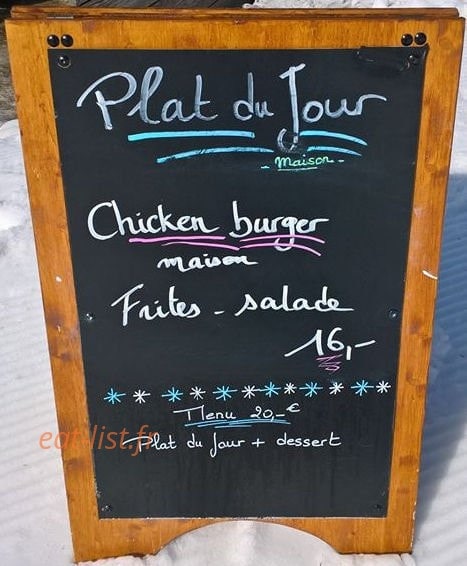 Plat du Jour
- maison -
Chicken burger
maison
Frites - salade
16,-
Menu 20,-€
eatilist.fr
Plat du Jour + dessert